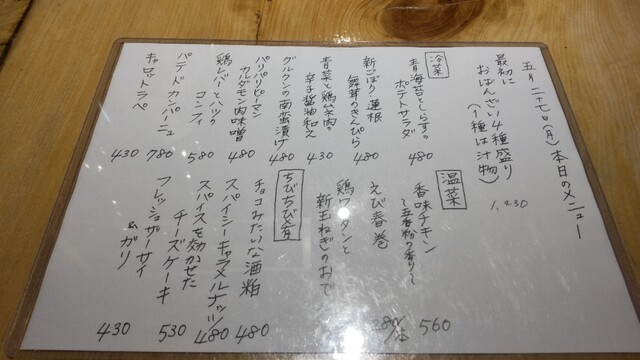 五月二十七日(月)本日のメニュー
最初に
おばんざい4種盛り
(1種は汁物)
1,230
冷菜
青海苔としらすの
ポテトサラダ
480
新ごぼう、蓮根
舞茸のきんぴら
480
青菜と鶏ムネ肉の
辛子醤油和え
430
グルクンの南蛮漬け
480
パリパリピーマン
カルダモン肉味噌
480
鶏レバーとハツの
コンフィ
580
パテドカンパーニュ
780
キャロットラペ
430
温菜
香味チキン
〜五香粉の香り〜
560
えび春巻
380/本
鶏ワンタンと
新玉ねぎのおでん
ちびちび肴
チョコみたいな酒粕
480
スパイシーキャラメルナッツ
480
スパイスを効かせた
チーズケーキ
530
フレッシュザーサイ
&ガリ
430